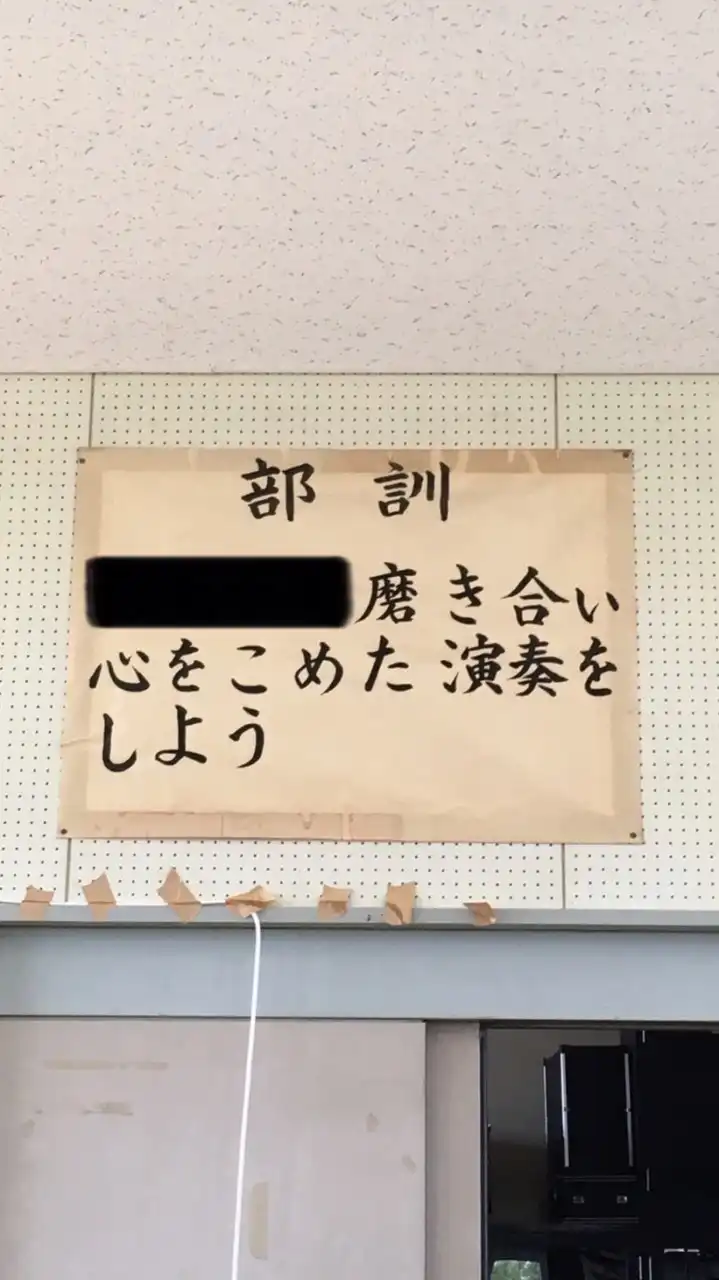 部訓
磨き合い
心をこめた演奏を
しよう